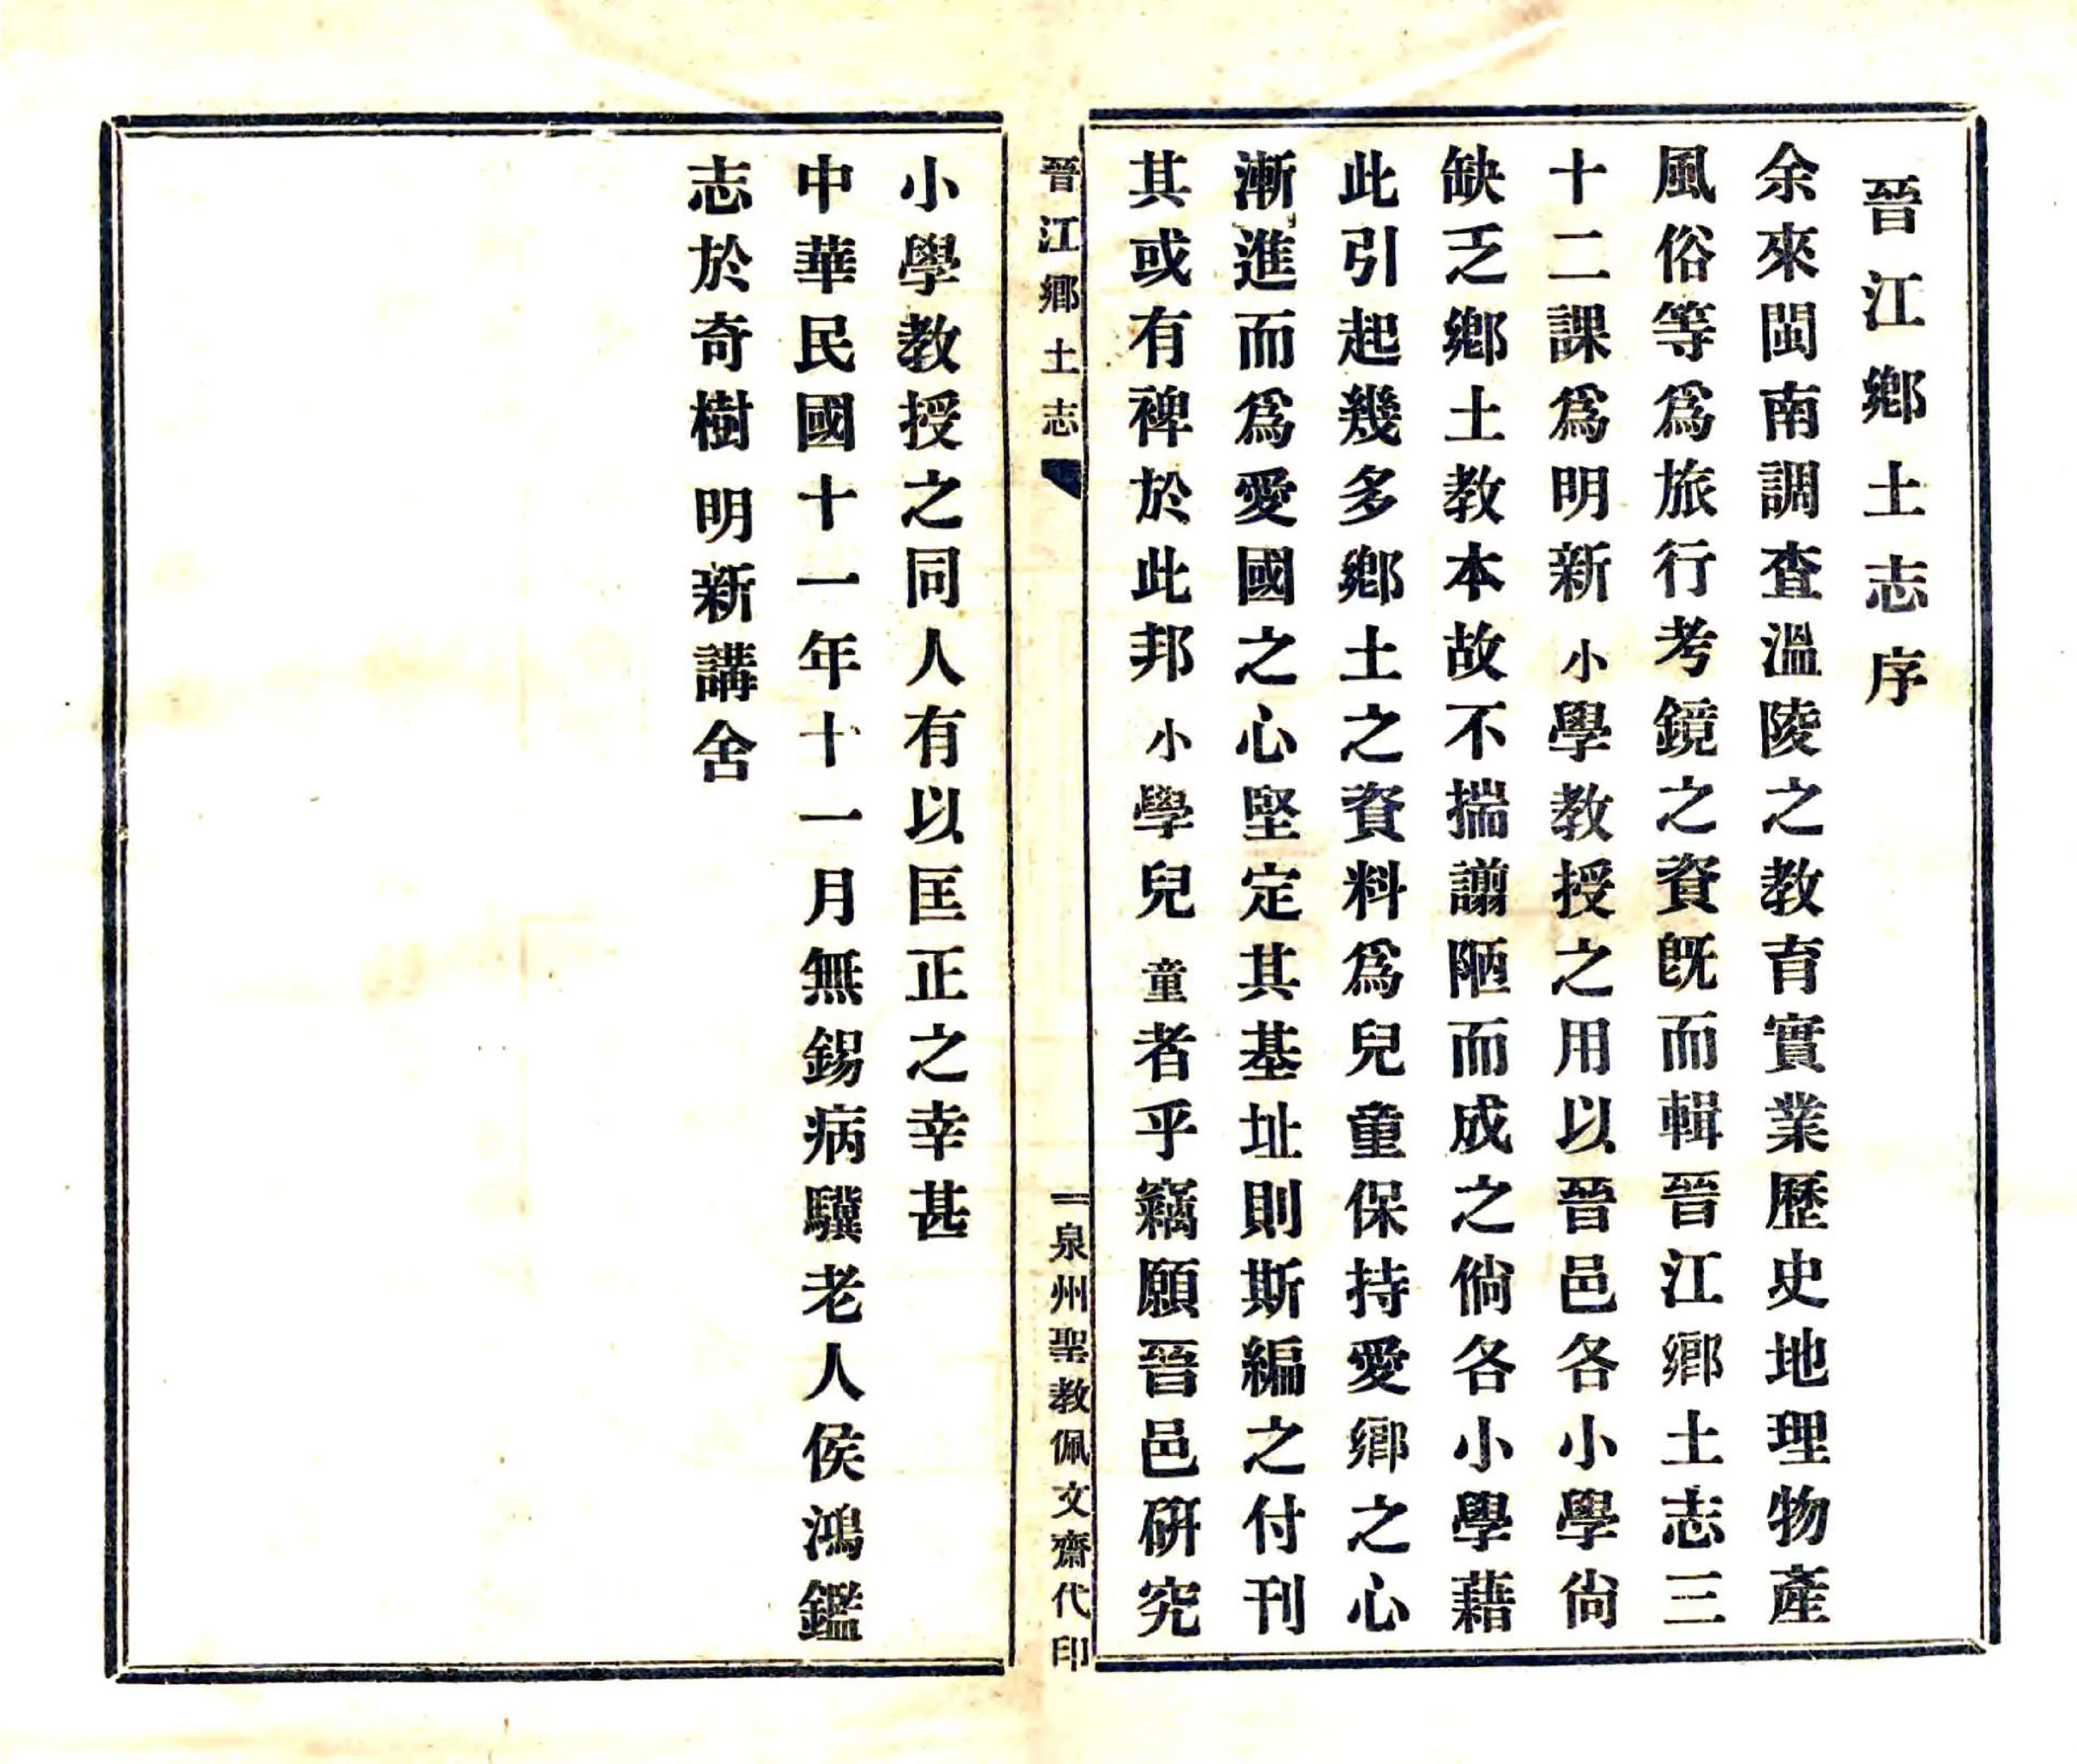 晉江鄕土志序
余來閩南調查溫陵之教育實業歷史地理物產
風俗等爲旅行考鏡之資旣而輯晉江鄕土志三
十二課爲明新小學教授之用以晉邑各小學尙
缺乏鄕土教本故不揣譾陋而成之倘各小學藉
此引起幾多鄕土之資料爲兒童保持愛鄕之心
漸進而爲愛國之心堅定其基址則斯編之付刊
其或有裨於此邦小學兒童者乎竊願晉邑硏究
晉江鄕土志
一
泉州聖教佩文齋代印
小學教授之同人有以匡正之幸甚
中華民國十一年十一月無錫病驥老人侯鴻鑑
志於奇樹明新講舍